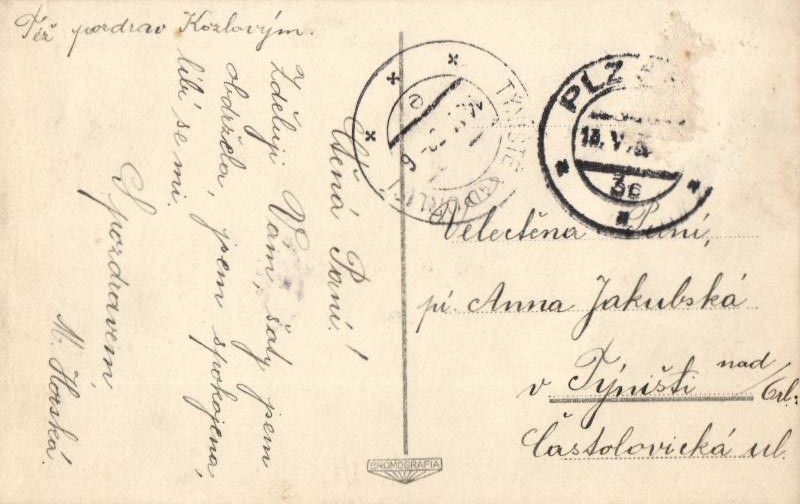 Též pozdrav Kozlovým.
Ctená Paní!
Zděluji Vám, šaty jsem
obdržela, jsem spokojena,
líbí se mi.
S pozdravem
M. Horská.
PLZ
3e
Velectěna Paní,
pí. Anna Jakubská
v Týništi nad/Orl:
Častolovická ul.
BROMOGRAFIA